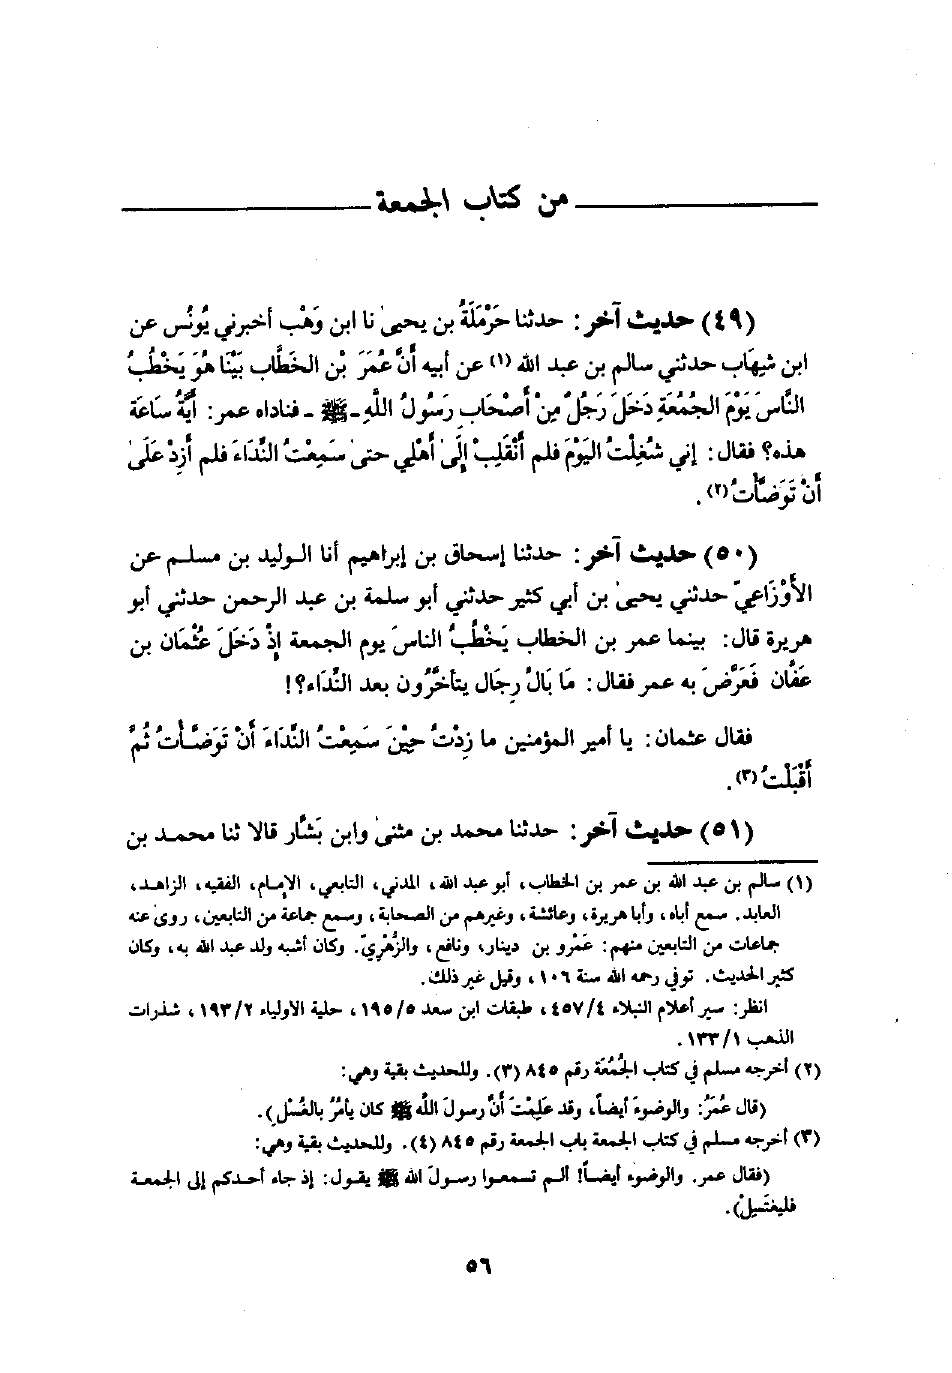 من كتاب الجمعة
(٤٩) حديث آخر: حدثنا حَرْمَلَةُ بن يحيىٰ نا ابن وَهْب أخبرني يُونُس عن
ابن شِهَاب حدثني سالم بن عبد الله (١) عن أبيه أَنَّ عُمَرَ بْن الخَطَّاب بَيْنَا هُوَ يَخْطُبُ
النَّاسَ يَوْمَ الجُمُعَةِ دَخَلَ رَجُلٌ مِنْ أَصْحَابِ رَسُولُ اللَّهِ ـ ﷺ ـ فناداه عمر: أَيَّةُ سَاعَة
هذه؟ فقال: إني شُغِلْتُ اليَوْمَ فلم أَنْقَلِبْ إِلَىٰ أَهْلِي حتىٰ سَمِعْتُ النِّدَاءَ فلم أَزِدْ عَلَىٰ
أَنْ تَوَضَّأْتُ (٢).
(٥٠) حديث آخر: حدثنا إسحاق بن إبراهيم أنا الوليد بن مسلم عن
الأَوْزَاعِيّ حدثني يحيىٰ بن أبي كثير حدثني أبو سلمة بن عبد الرحمن حدثني أبو
هريرة قال: بينما عمر بن الخطاب يَخْطُبُ الناسَ يوم الجمعة إِذْ دَخَلَ عُثْمَان بن
عَفَّان فَعَرَّضَ به عمر فقال: مَا بَالُ رِجَال يتأخَّرُون بعد النِّدَاء؟!
فقال عثمان: يا أمير المؤمنين ما زِدْتُ حِيْنَ سَمِعْتُ النِّدَاءَ أَنْ تَوَضَّأْتُ ثُمَّ
أَقْبَلْتُ (٣).
(٥١) حديث آخر: حدثنا محمد بن مثنىٰ وابن بَشَّار قالا ثنا محمد بن
(١) سالم بن عبد الله بن عمر بن الخطاب، أبو عبد الله، المدني، التابعي، الإمام، الفقيه، الزاهد،
العابد. سمع أباه، وأبا هريرة، وعائشة، وغيرهم من الصحابة، وسمع جماعة من التابعين، روىٰ عنه
جماعات من التابعين منهم: عَمْرو بن دينار، ونافع، والزُّهْرِيّ. وكان أشبه ولد عبد الله به، وكان
كثير الحديث. توفي رحمه الله سنة ١٠٦، وقيل غير ذلك.
انظر: سير أعلام النبلاء ٤٥٧/٤، طبقات ابن سعد ١٩٥/٥، حلية الاولياء ١٩٣/٢، شذرات
الذهب ١٣٣/١.
(٢) أخرجه مسلم في كتاب الجُمُعَة رقم ٨٤٥ (٣). وللحديث بقية وهي:
(قال عُمَرُ: والوضوءَ أيضاً، وقد عَلِمْتَ أَنَّ رسولَ اللَّه ﷺ كان يأمُرُ بالغُسْلِ).
(٣) أخرجه مسلم في كتاب الجمعة باب الجمعة رقم ٨٤٥ (٤). وللحديث بقية وهي:
(فقال عمر. والوضوء أيضاً! ألم تسمعوا رسولَ الله ﷺ يقول: إذ جاء أحدكم إلى الجمعة
فليغتَسِلْ).
٥٦